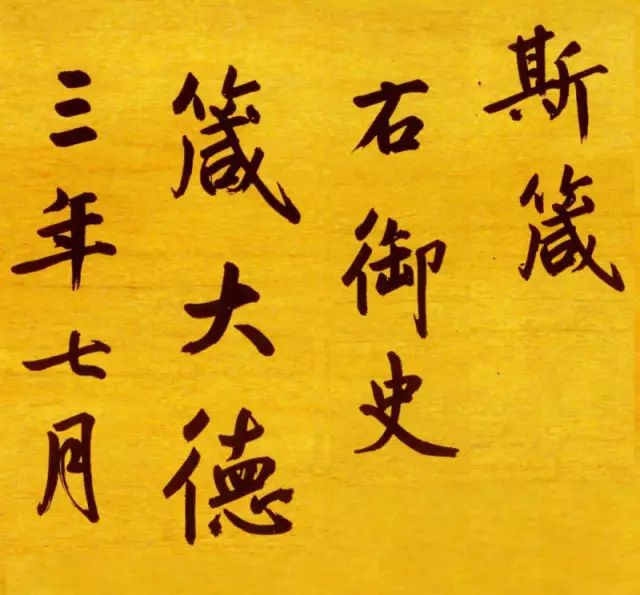 斯箴
右御史
箴大德
三年七月